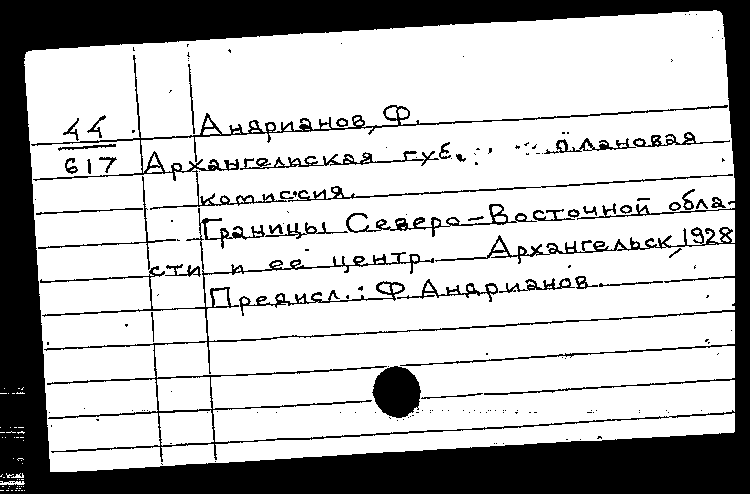 44 Андрианов, Ф.
617 Архангельская губ. плановая
комиссия.
Границы Северо-Восточной обла-
сти и ее центр. Архангельск, 1928
Предисл.: Ф. Андрианов.